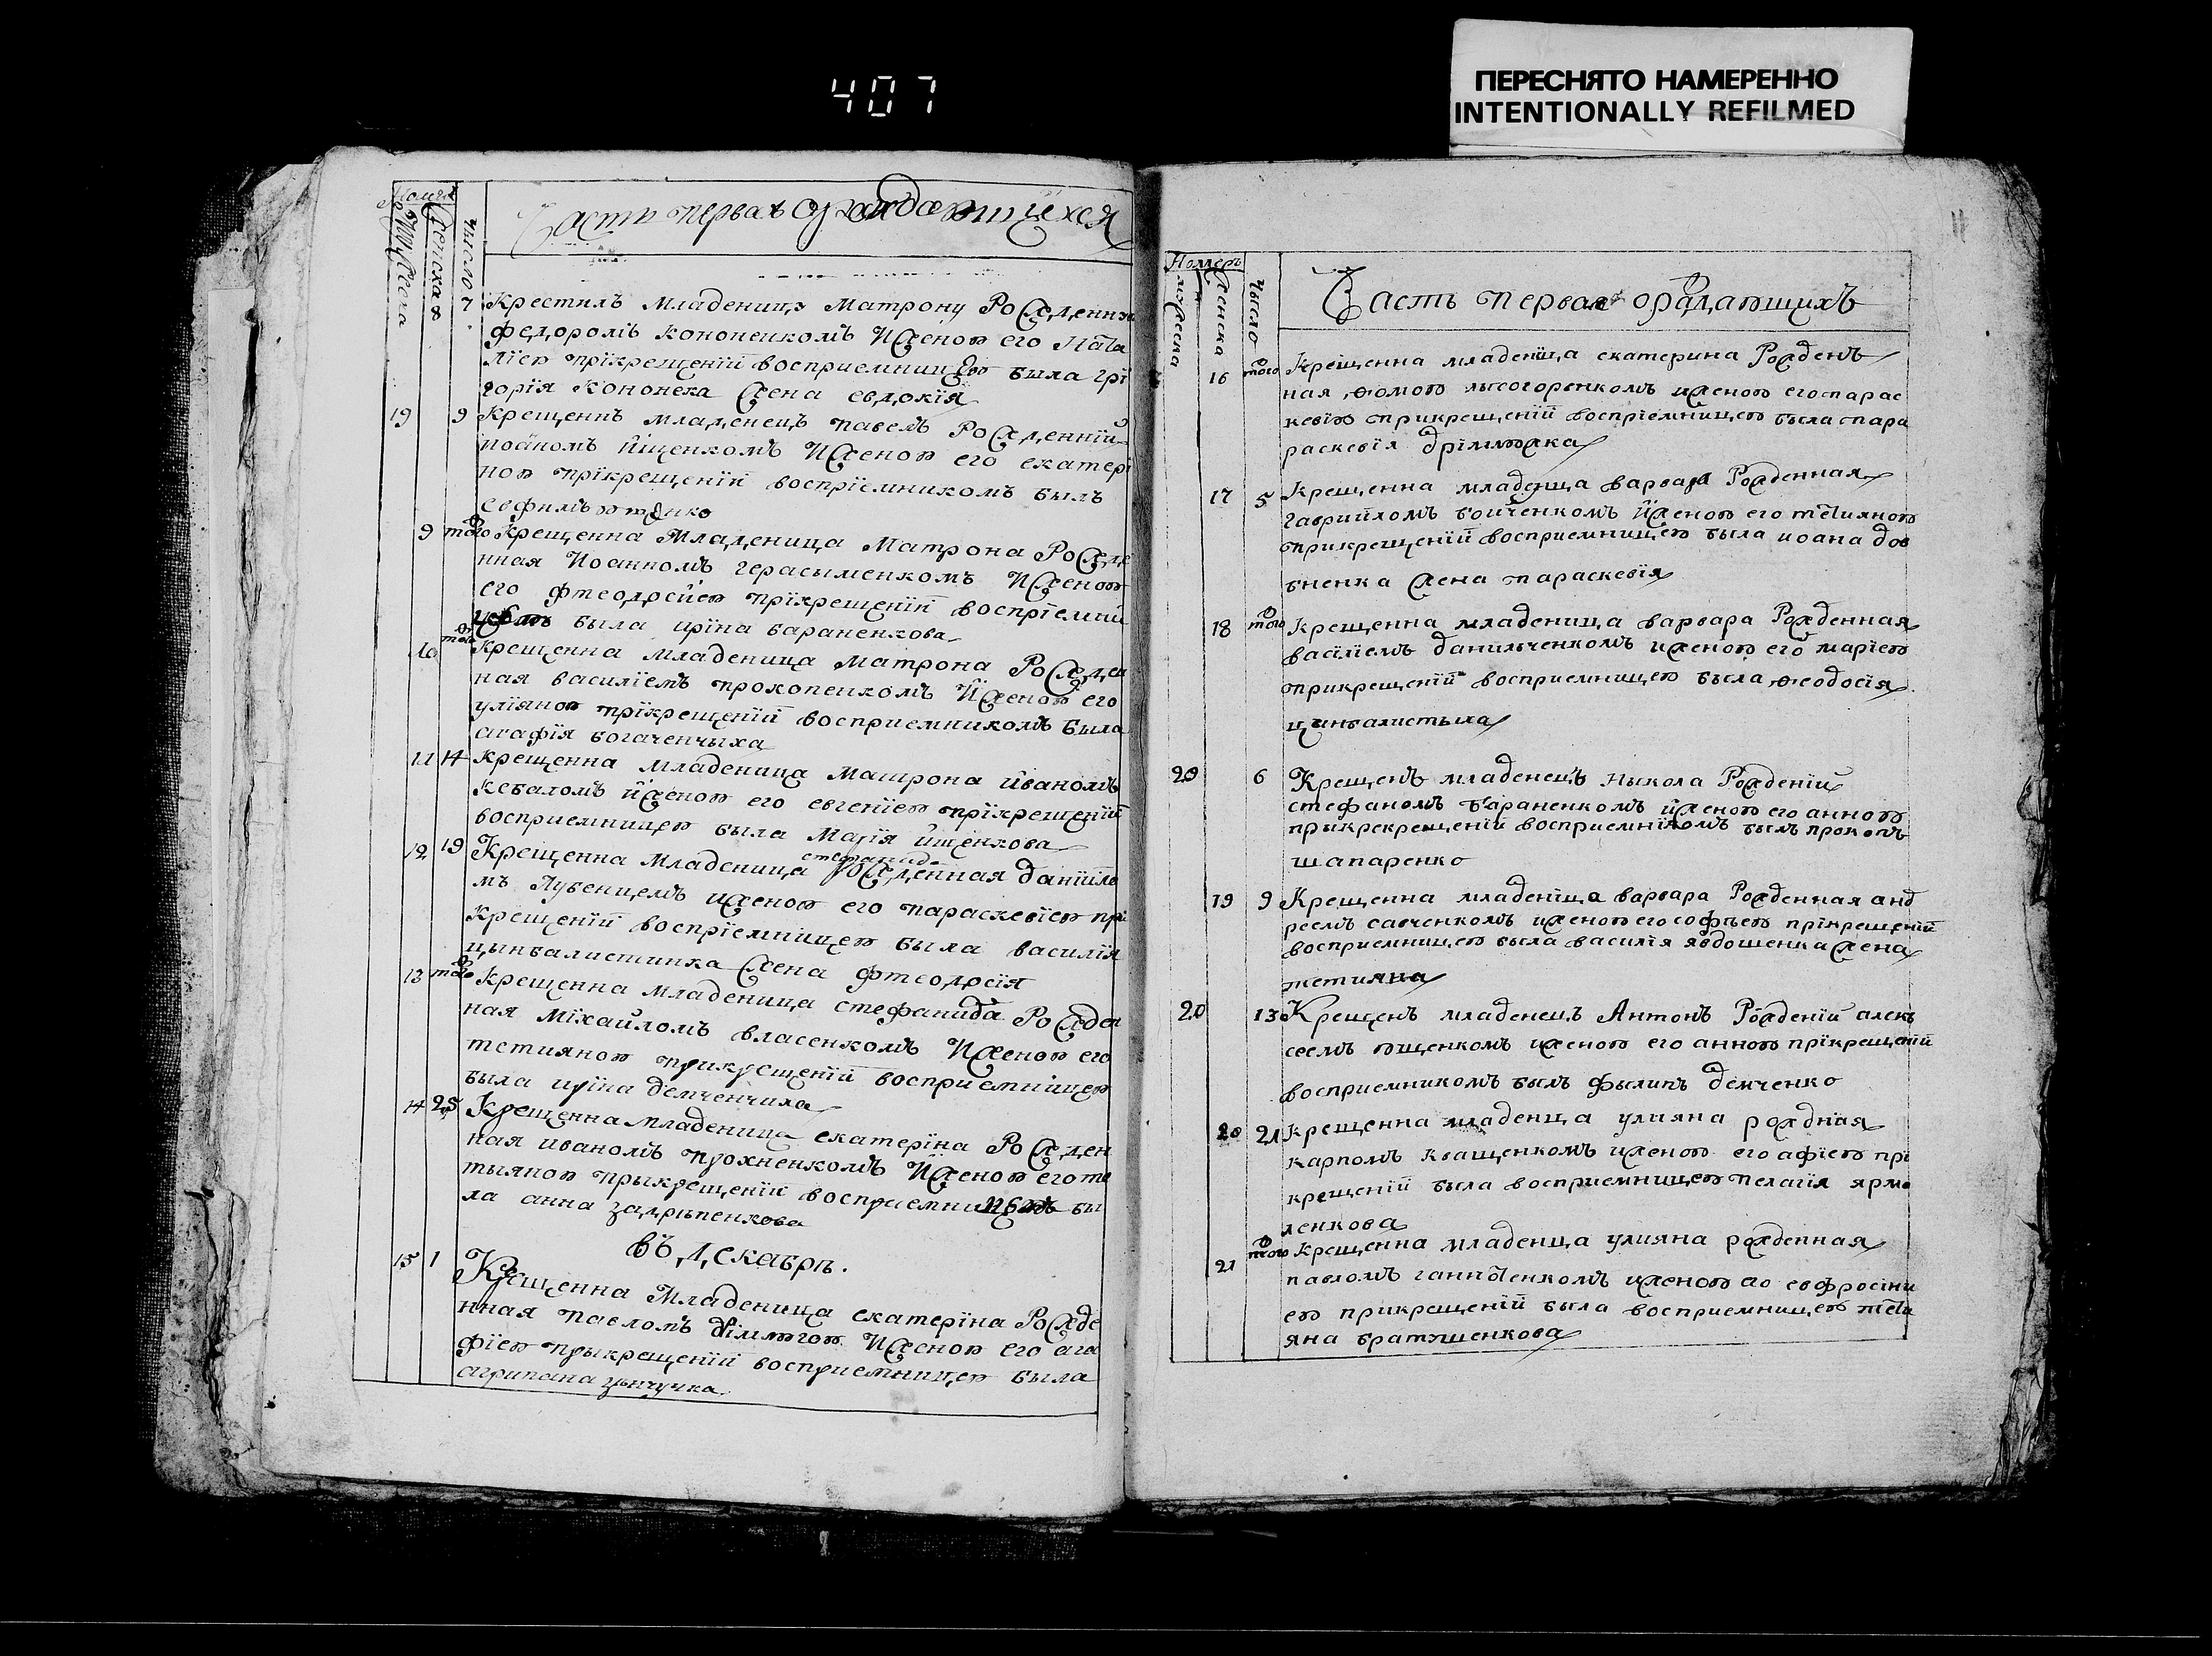 407
ПЕРЕСНЯТО НАМЕРЕННО
INTENTIONALLY REFILMED
Часть первая о раждающихся
число
7 Крестилъ младеницу Матрону Рожденну
федоромъ кононенкомъ Иженою его Ната
лїею прїкрещенїй восприемницею была грї
горїя Кононека жена евдокїя
19 9 Крещеннъ младенецъ павелъ Рожденнїй
Иженою его екатерї
ною прїкрещенїй воспрїемникомъ былъ
9 того Крещенна Младеница Матрона Рожде
нная Иоанномъ герасыменкомъ Иженою
его фтеодосїею прїкрещенїй воспрїемни
была ирїна бараненкова
10 того Крещенна младеница Матрона Рожден
ная василїемъ прокопенкомъ Иженою его
улїяною прїкрещенїй восприемникомъ была
агафїя богаченчыха
11 14 Крещенна младеница Матрона иваномъ
кебаломъ иженою его евгенїею прїкрещенїй
восприемницею была Марїя йщенкова
стефанида
12 19 Крещенна Младеница Рожденная данїйло
мъ Лубенцемъ иженою его параскевїею прї
крещенїй воспрїемницею была василїя
цынбалистинка жена фтеодосїя
13 того Крещенна младеница стефанида Рожден
ная Мїхайломъ власенкомъ Иженою его
тетияною прикрещенїй восприемнїцею
была ирїна демченчиха
14 25 Крещенна младеница екатерїна Рожден
ная иваномъ прохненкомъ Иженою его те
тыяною прыкрещенїй восприемницею бы
ла анна
въ декабрѣ.
15 1 Крещенна Младеница екатерїна Рожде
нная павломъ Иженою его ага
фїею прыкрещенїй восприемницею была
11
Номеръ
женска
число
Часть первая о раждающихъ
16 того Крещенна младенїца екатерина Рожден
ная ѳомою лысогоренкомъ иженою его парас
кевїю прикрещенїй воспрїемницею была пара
раскевїя
17 5 Крещенна младеница варвара Рожденная
гаврийломъ бойченкомъ иженою его тетияною
прикрещенїй восприемницею была иоана дов
бненка жена параскевїя
18 того Крещенна младеница варвара Рожденная
васїлїемъ данильченкомъ иженою его марїею
прикрещенїй восприемницею была ѳеодосїя
цинбалистыха
20 6 Крещенъ младенецъ Ныкола Рожденїй
стефаномъ бараненкомъ иженою его анною
прыкрекрещенїй восприемнїкомъ былъ прокопъ
шапаренко
19 9 Крещенна младенїца варвара Рожденная анд
реемъ савченкомъ иженою его софѣею прїкрещенїй
восприемницею была василїя явдошенка жена
тетияна
20 13 Крещенъ младенецъ Антонъ Рожденїй алекъ
сеемъ ющенкомъ иженою его анною прїкрещенїй
восприемникомъ былъ фылипъ демченко
20 21 Крещенна младеница улияна рождная
карпомъ кващенкомъ иженою его афїею прї
крещенїй была восприемницею пелагїя ярмо
ленкова
21 того Крещенна младеница улияна рожденная
павломъ иженою его евфросини
ею прикрещенїй была восприемницею тети
яна братышенкова